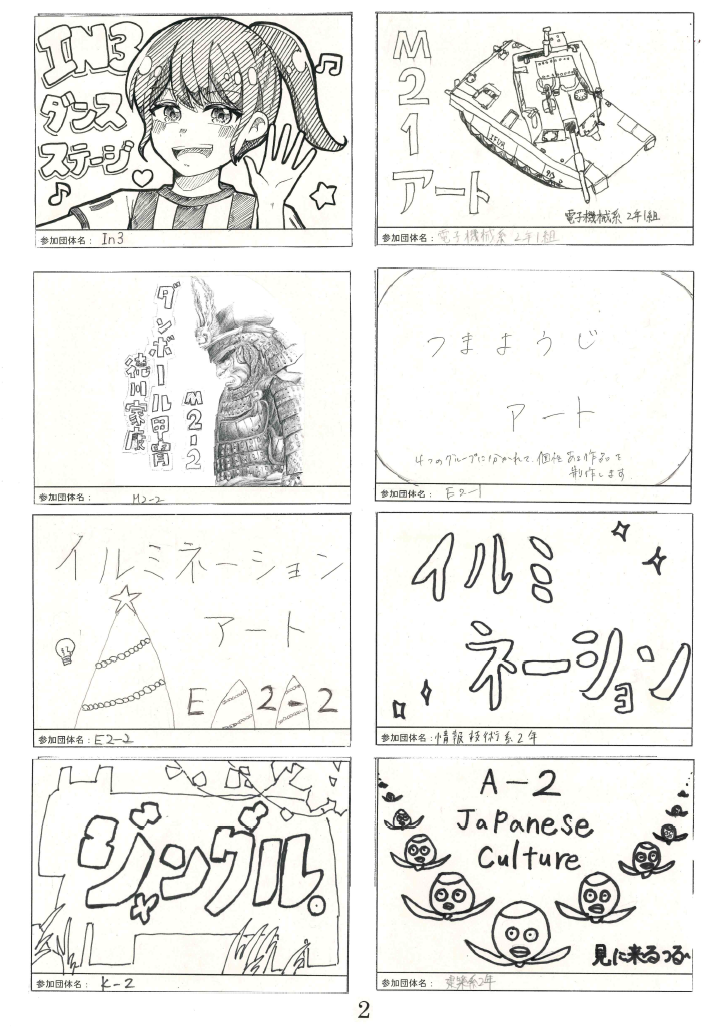 IN3
ダンス
ステージ
参加団体名： In3
M
2
1
アート
電子機械系 2年1組
参加団体名： 電子機械系 2年1組
ダンボール甲冑
徳川家康
M2-2
参加団体名： M2-2
つまようじ
アート
4つのグループに分かれて、個性ある作品を
制作します
参加団体名： E2-1
イルミネーション
アート
E 2-2
参加団体名： E2-2
イルミ
ネーション
参加団体名： 情報技術系2年
ジャングル。
参加団体名： K-2
A-2
Japanese
Culture
見に来るっる〜
参加団体名：
2